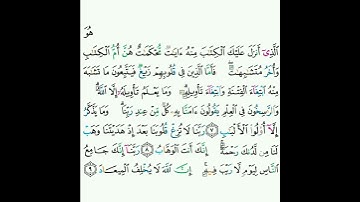 هُوَ
ٱلَّذِىٓ أَنزَلَ عَلَيْكَ ٱلْكِتَٰبَ مِنْهُ ءَايَٰتٌ مُّحْكَمَٰتٌ هُنَّ أُمُّ ٱلْكِتَٰبِ
وَأُخَرُ مُتَشَٰبِهَٰتٌ ۖ فَأَمَّا ٱلَّذِينَ فِى قُلُوبِهِمْ زَيْغٌ فَيَتَّبِعُونَ مَا تَشَٰبَهَ
مِنْهُ ٱبْتِغَآءَ ٱلْفِتْنَةِ وَٱبْتِغَآءَ تَأْوِيلِهِۦ ۗ وَمَا يَعْلَمُ تَأْوِيلَهُۥٓ إِلَّا ٱللَّهُ ۗ
وَٱلرَّٰسِخُونَ فِى ٱلْعِلْمِ يَقُولُونَ ءَامَنَّا بِهِۦ كُلٌّ مِّنْ عِندِ رَبِّنَا ۗ وَمَا يَذَّكَّرُ
إِلَّآ أُو۟لُوا۟ ٱلْأَلْبَٰبِ ٧ رَبَّنَا لَا تُزِغْ قُلُوبَنَا بَعْدَ إِذْ هَدَيْتَنَا وَهَبْ
لَنَا مِن لَّدُنكَ رَحْمَةً ۚ إِنَّكَ أَنتَ ٱلْوَهَّابُ ٨ رَبَّنَآ إِنَّكَ جَامِعُ
ٱلنَّاسِ لِيَوْمٍ لَّا رَيْبَ فِيهِ ۚ إِنَّ ٱللَّهَ لَا يُخْلِفُ ٱلْمِيعَادَ ٩